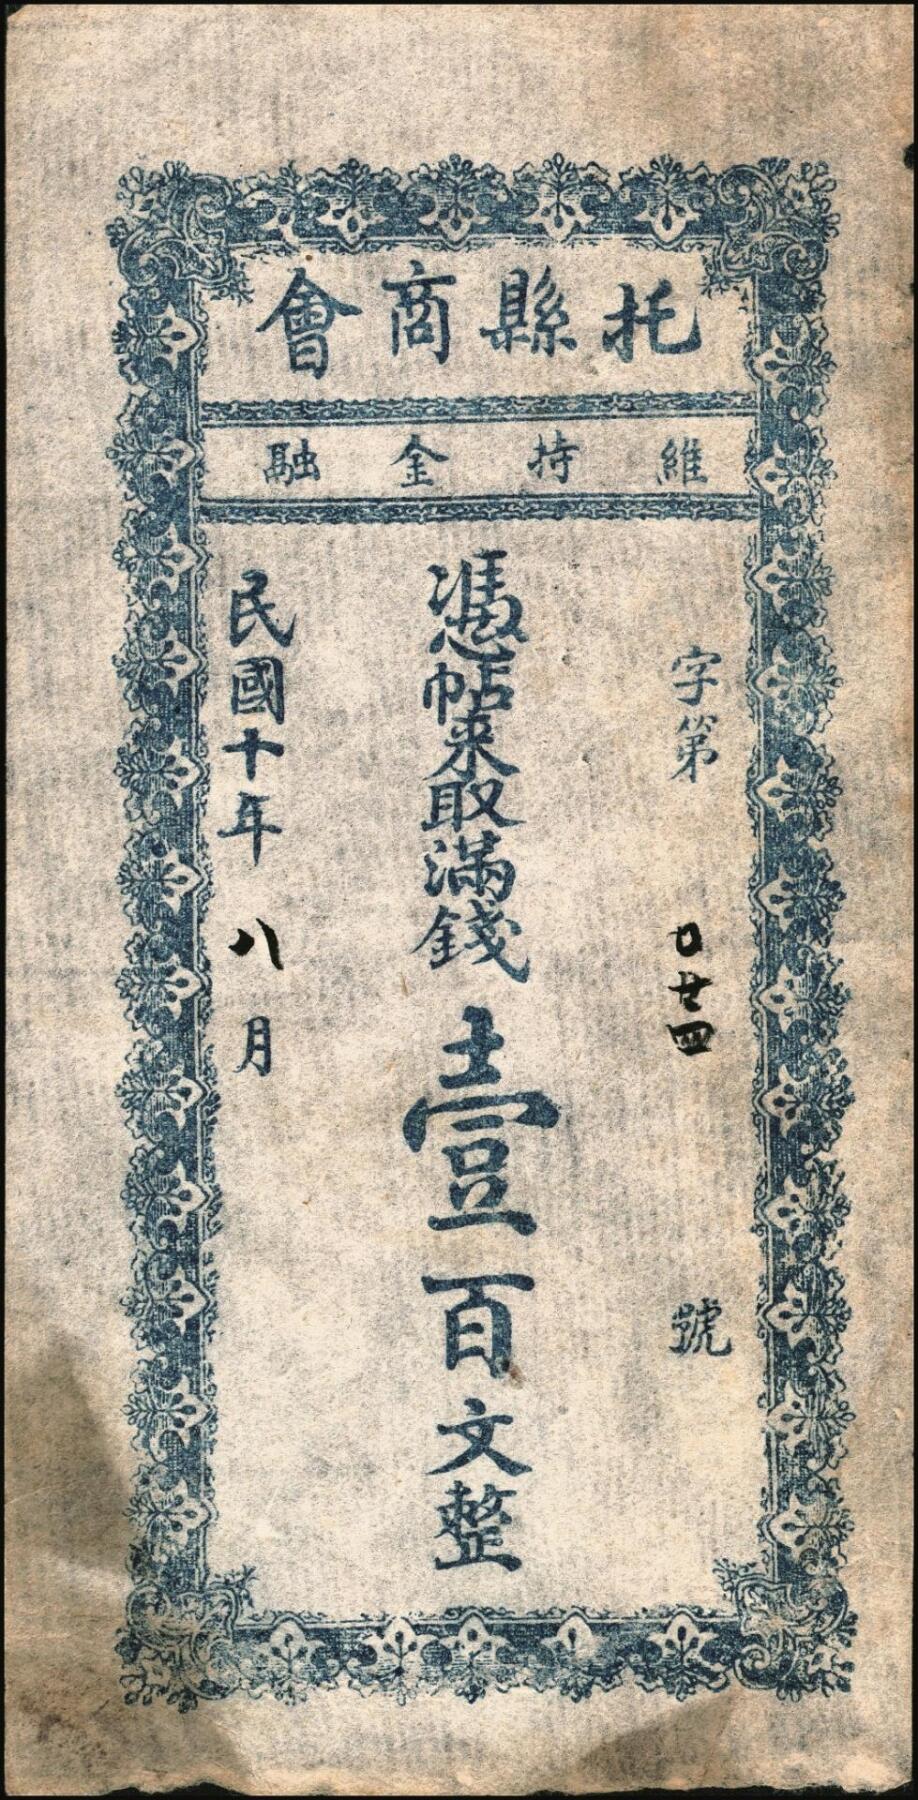 托縣商會
維持金融
字第 口廿四 號
憑帖來取滿錢壹百文整
民國十年八月